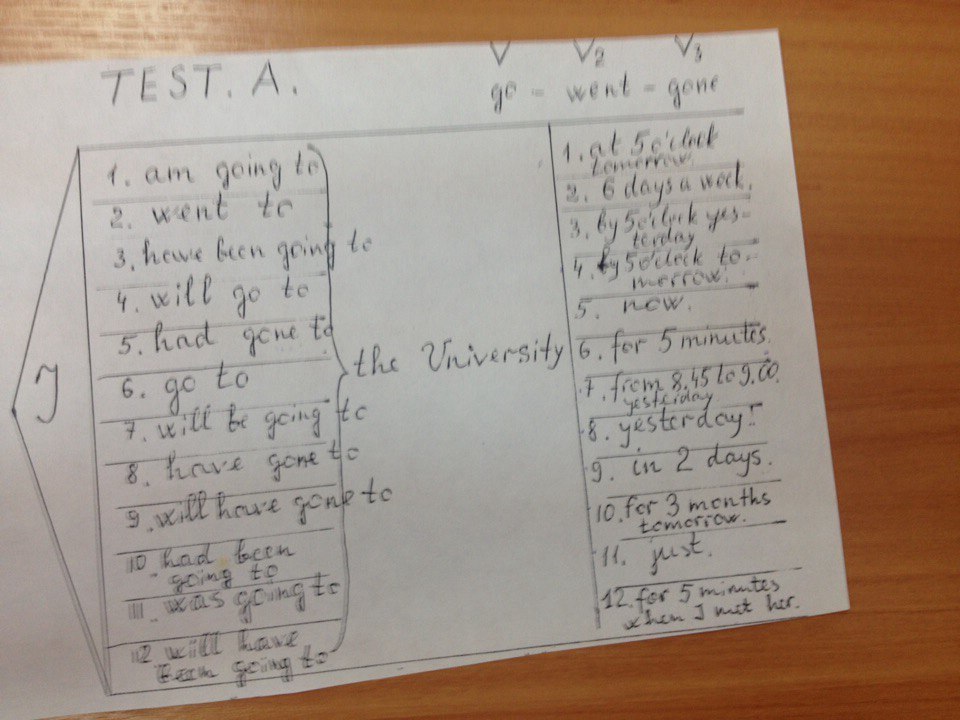 TEST. A.
V V2 V3
go - went - gone
I
1. am going to
2. went to
3. have been going to
4. will go to
5. had gone to
6. go to
7. will be going to
8. have gone to
9. will have gone to
10 had been
going to
11. was going to
12 will have
been going to
the University
1. at 5 o'clock
tomorrow.
2. 6 days a week.
3. by 5 o'clock yes-
terday
4. by 5 o'clock to-
morrow.
5. now.
6. for 5 minutes.
7. from 8.45 to 9.00.
yesterday
8. yesterday!
9. in 2 days.
10. for 3 months
tomorrow.
11. just.
12. for 5 minutes
when I met her.